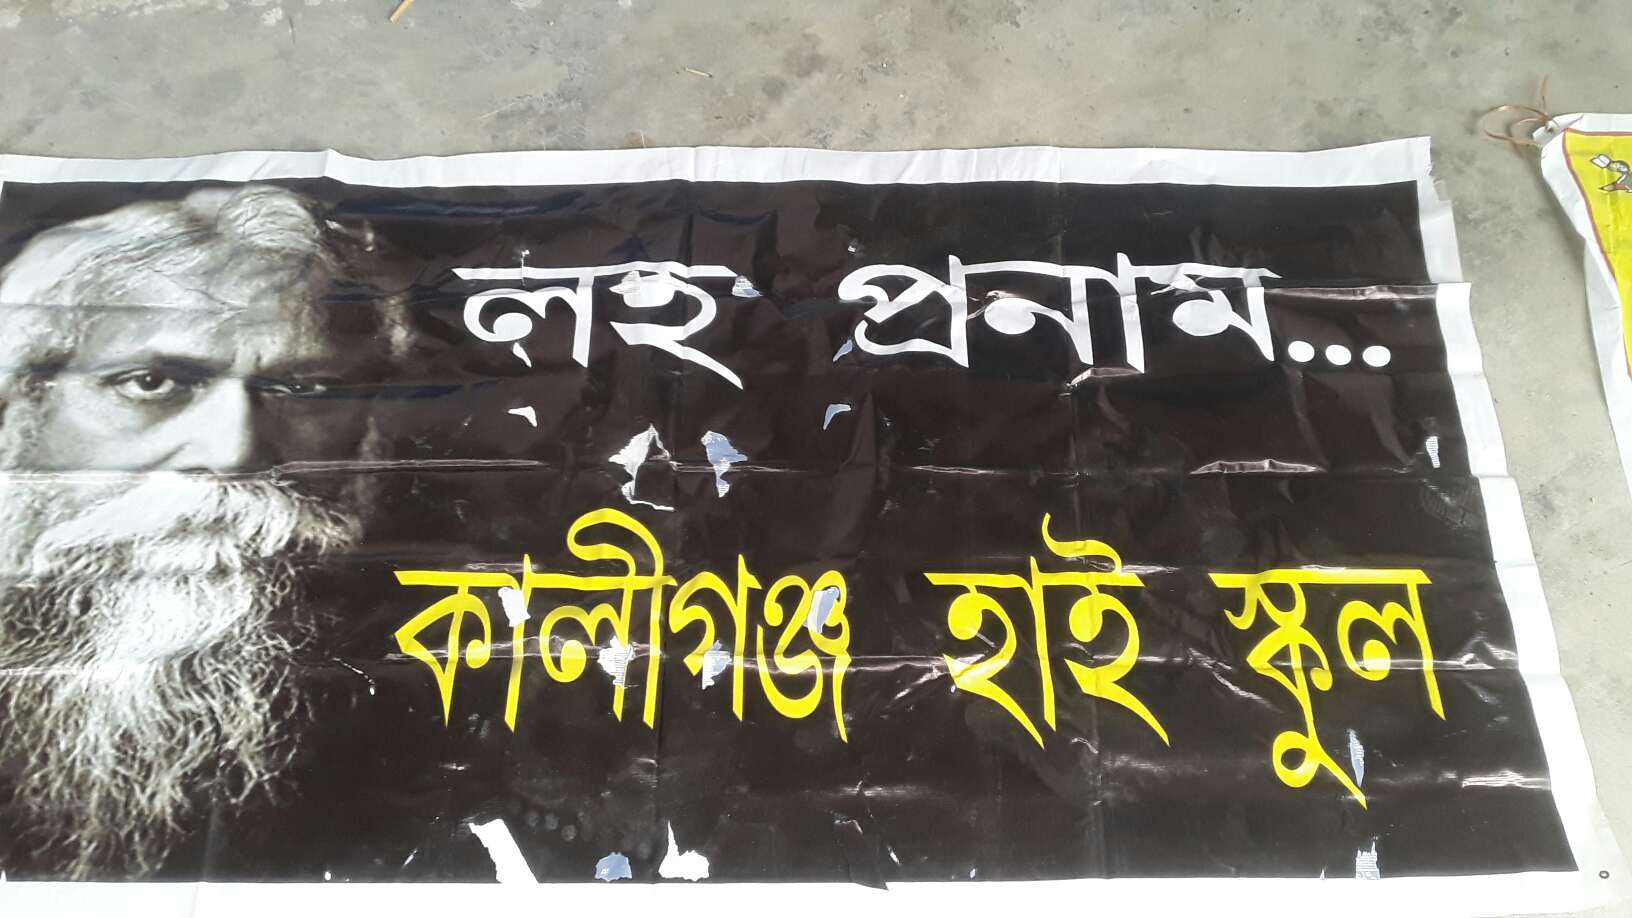 লহ প্রনাম...
কালীগঞ্জ হাই স্কুল